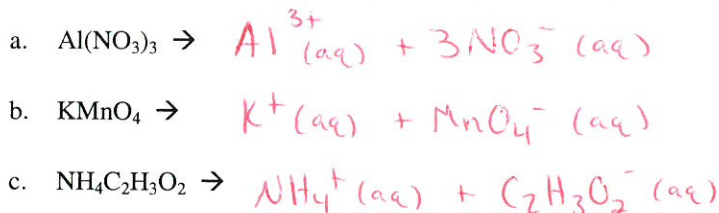 a. Al(NO₃)₃ → Al³⁺ (aq) + 3NO₃⁻ (aq)
b. KMnO₄ → K⁺ (aq) + MnO₄⁻ (aq)
c. NH₄C₂H₃O₂ → NH₄⁺ (aq) + C₂H₃O₂⁻ (aq)